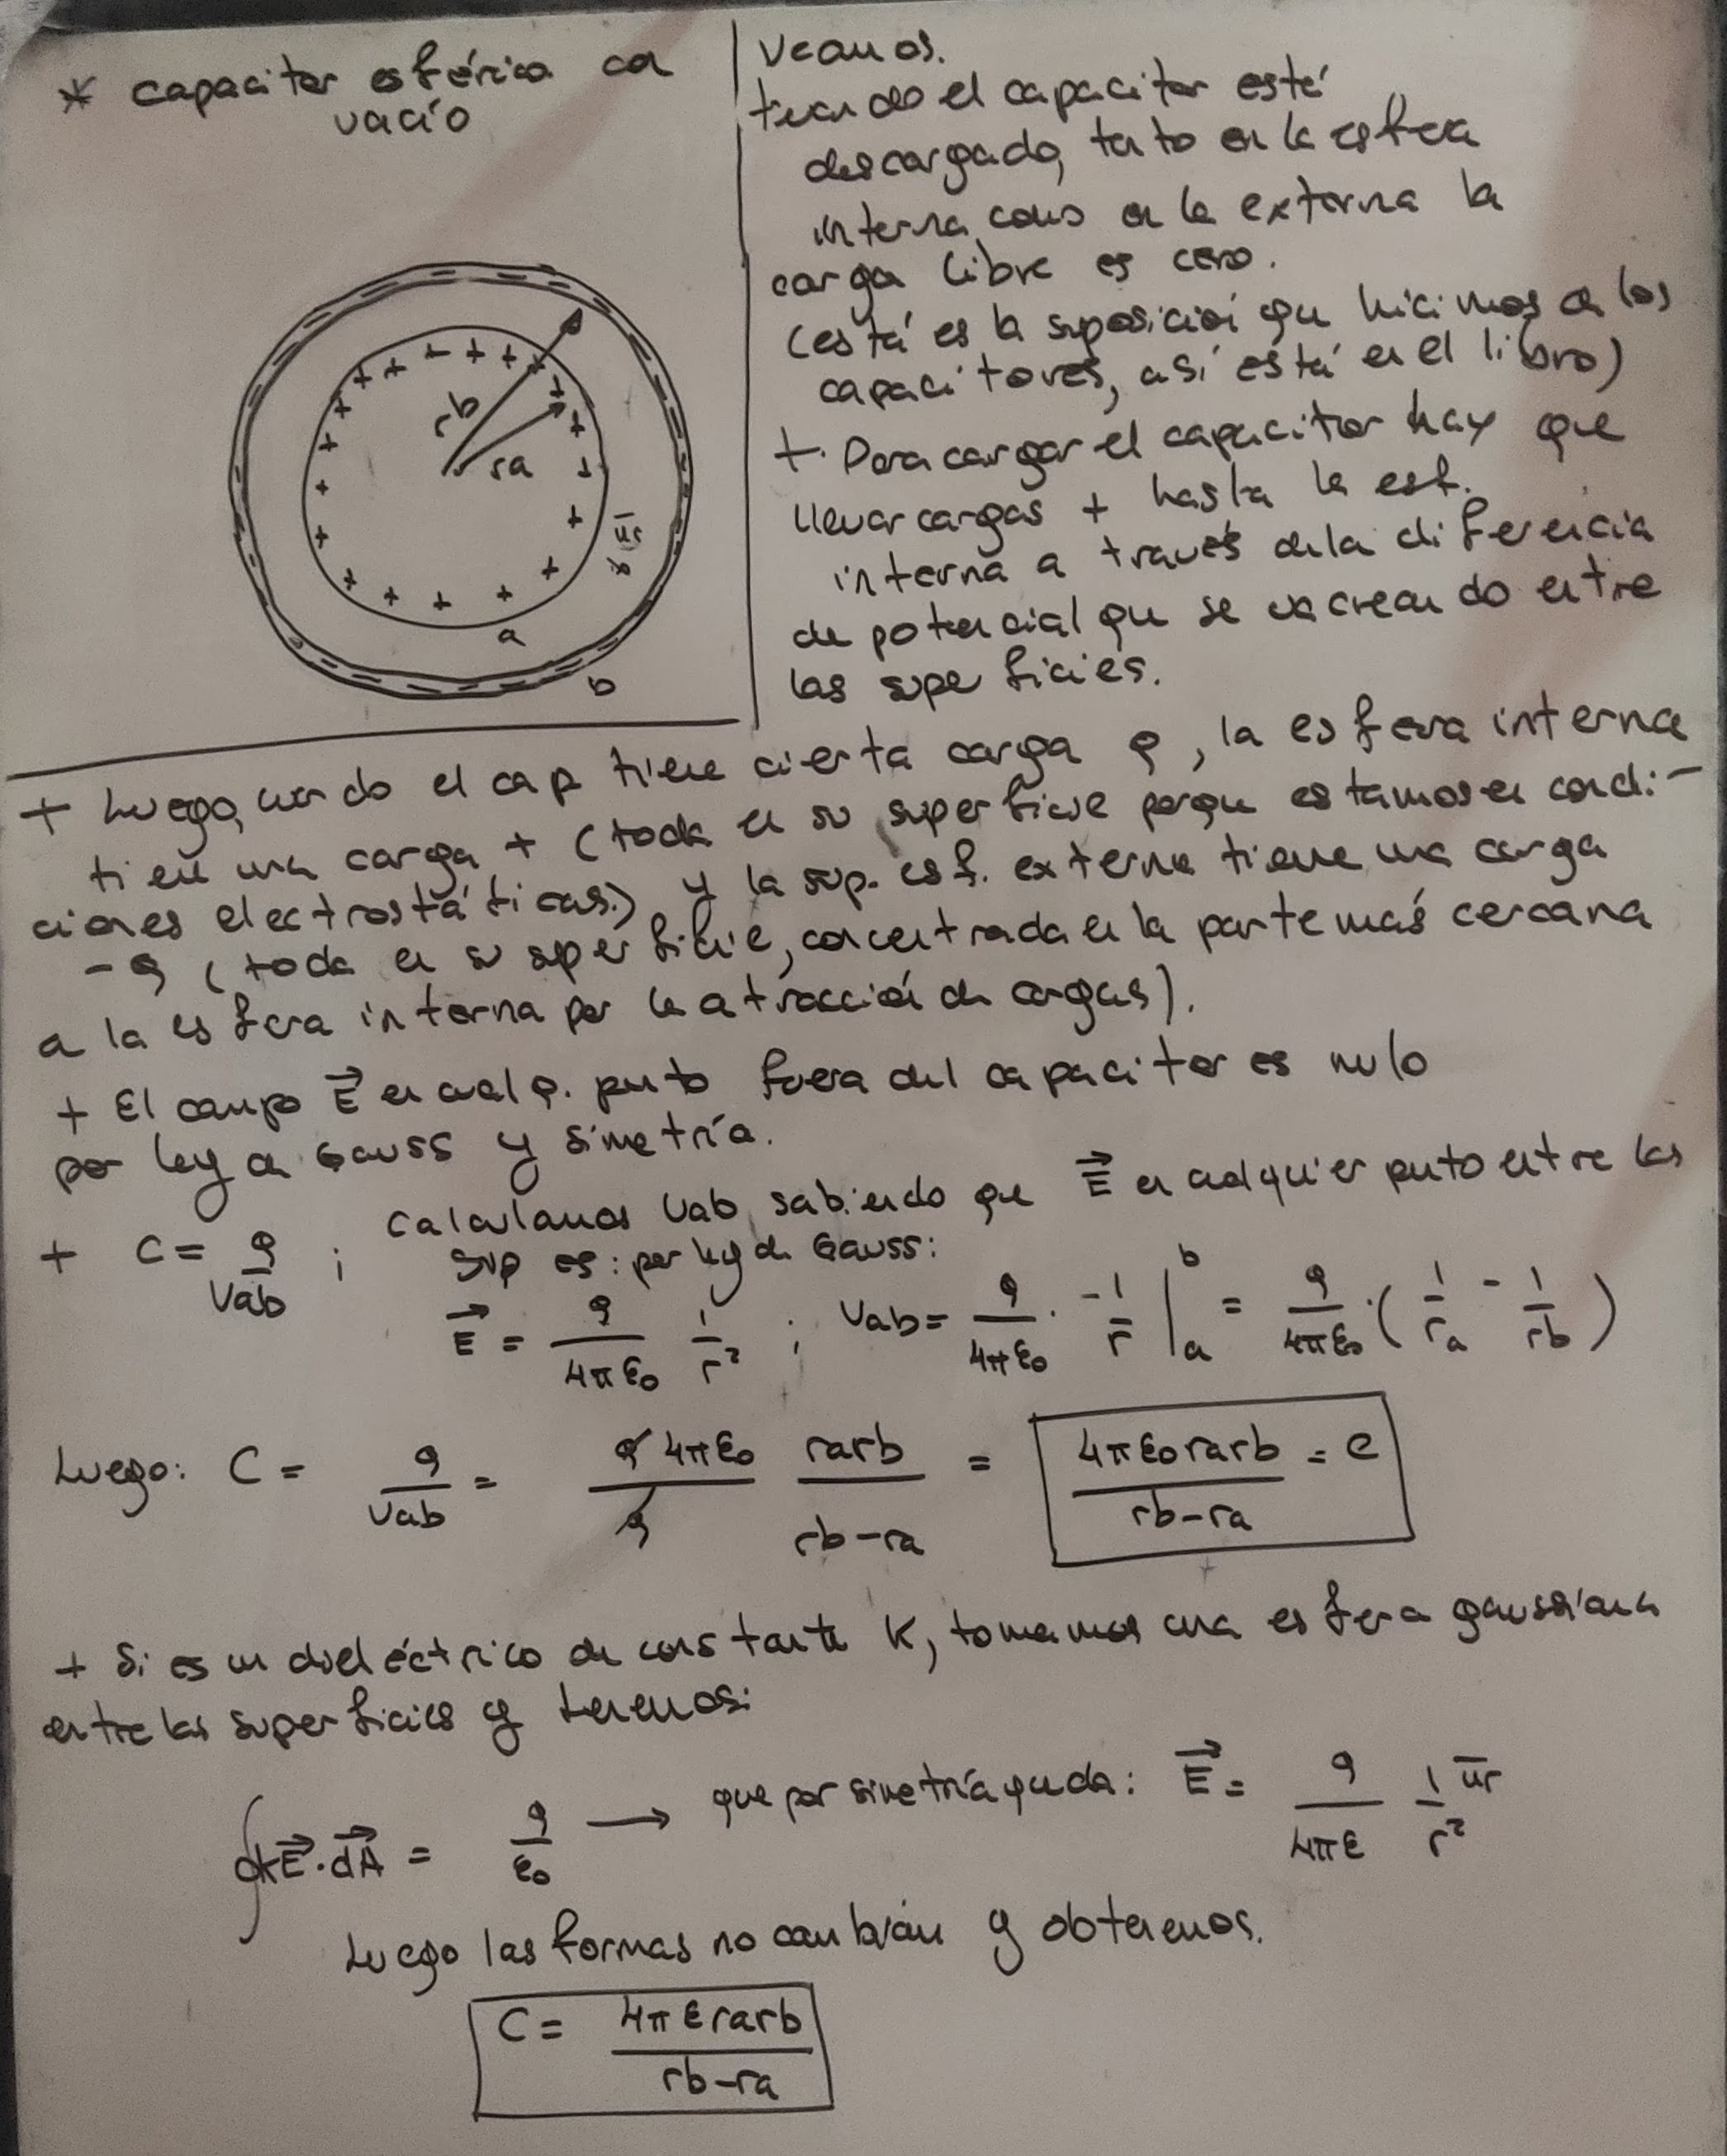 * capacitor esférico con
vacío
rb
ra
ūr
a
b
Veamos.
cuando el capacitor está
descargado, tanto en la esfera
interna como en la externa la
carga libre es cero.
(está es la suposición que hicimos en los
capacitores, así está en el libro)
+. Para cargar el capacitor hay que
llevar cargas + hasta la esf.
interna a través de la diferencia
de potencial que se va creando entre
las superficies.
+ Luego, cuando el cap tiene cierta carga q, la esfera interna
tiene una carga + (toda en su superficie porque estamos en condi-
ciones electrostáticas.) y la sup. esf. externa tiene una carga
-q (toda en su superficie, concentrada en la parte más cercana
a la esfera interna por la atracción de cargas).
+ El campo E⃗ en cualq. punto fuera del capacitor es nulo
por ley de Gauss y simetría.
+ C = q/Vab ; calculamos Vab sabiendo que E⃗ en cualquier punto entre las
sup es: por ley de Gauss:
E⃗ = q/4πε₀ 1/r² ; Vab = q/4πε₀ · -1/r |ₐᵇ = q/4πε₀ · (1/ra - 1/rb)
Luego: C = q/Vab = q 4πε₀/q rarb/rb-ra = 4πε₀rarb/rb-ra = C
+ Si es un dieléctrico de constante K, tomamos una esfera gaussiana
entre las superficies y tenemos:
∮KE⃗·dA⃗ = q/ε₀ → que por simetría queda: E⃗ = q/4πε 1/r² ūr
Luego las formas no cambian y obtenemos.
C = 4πεrarb/rb-ra